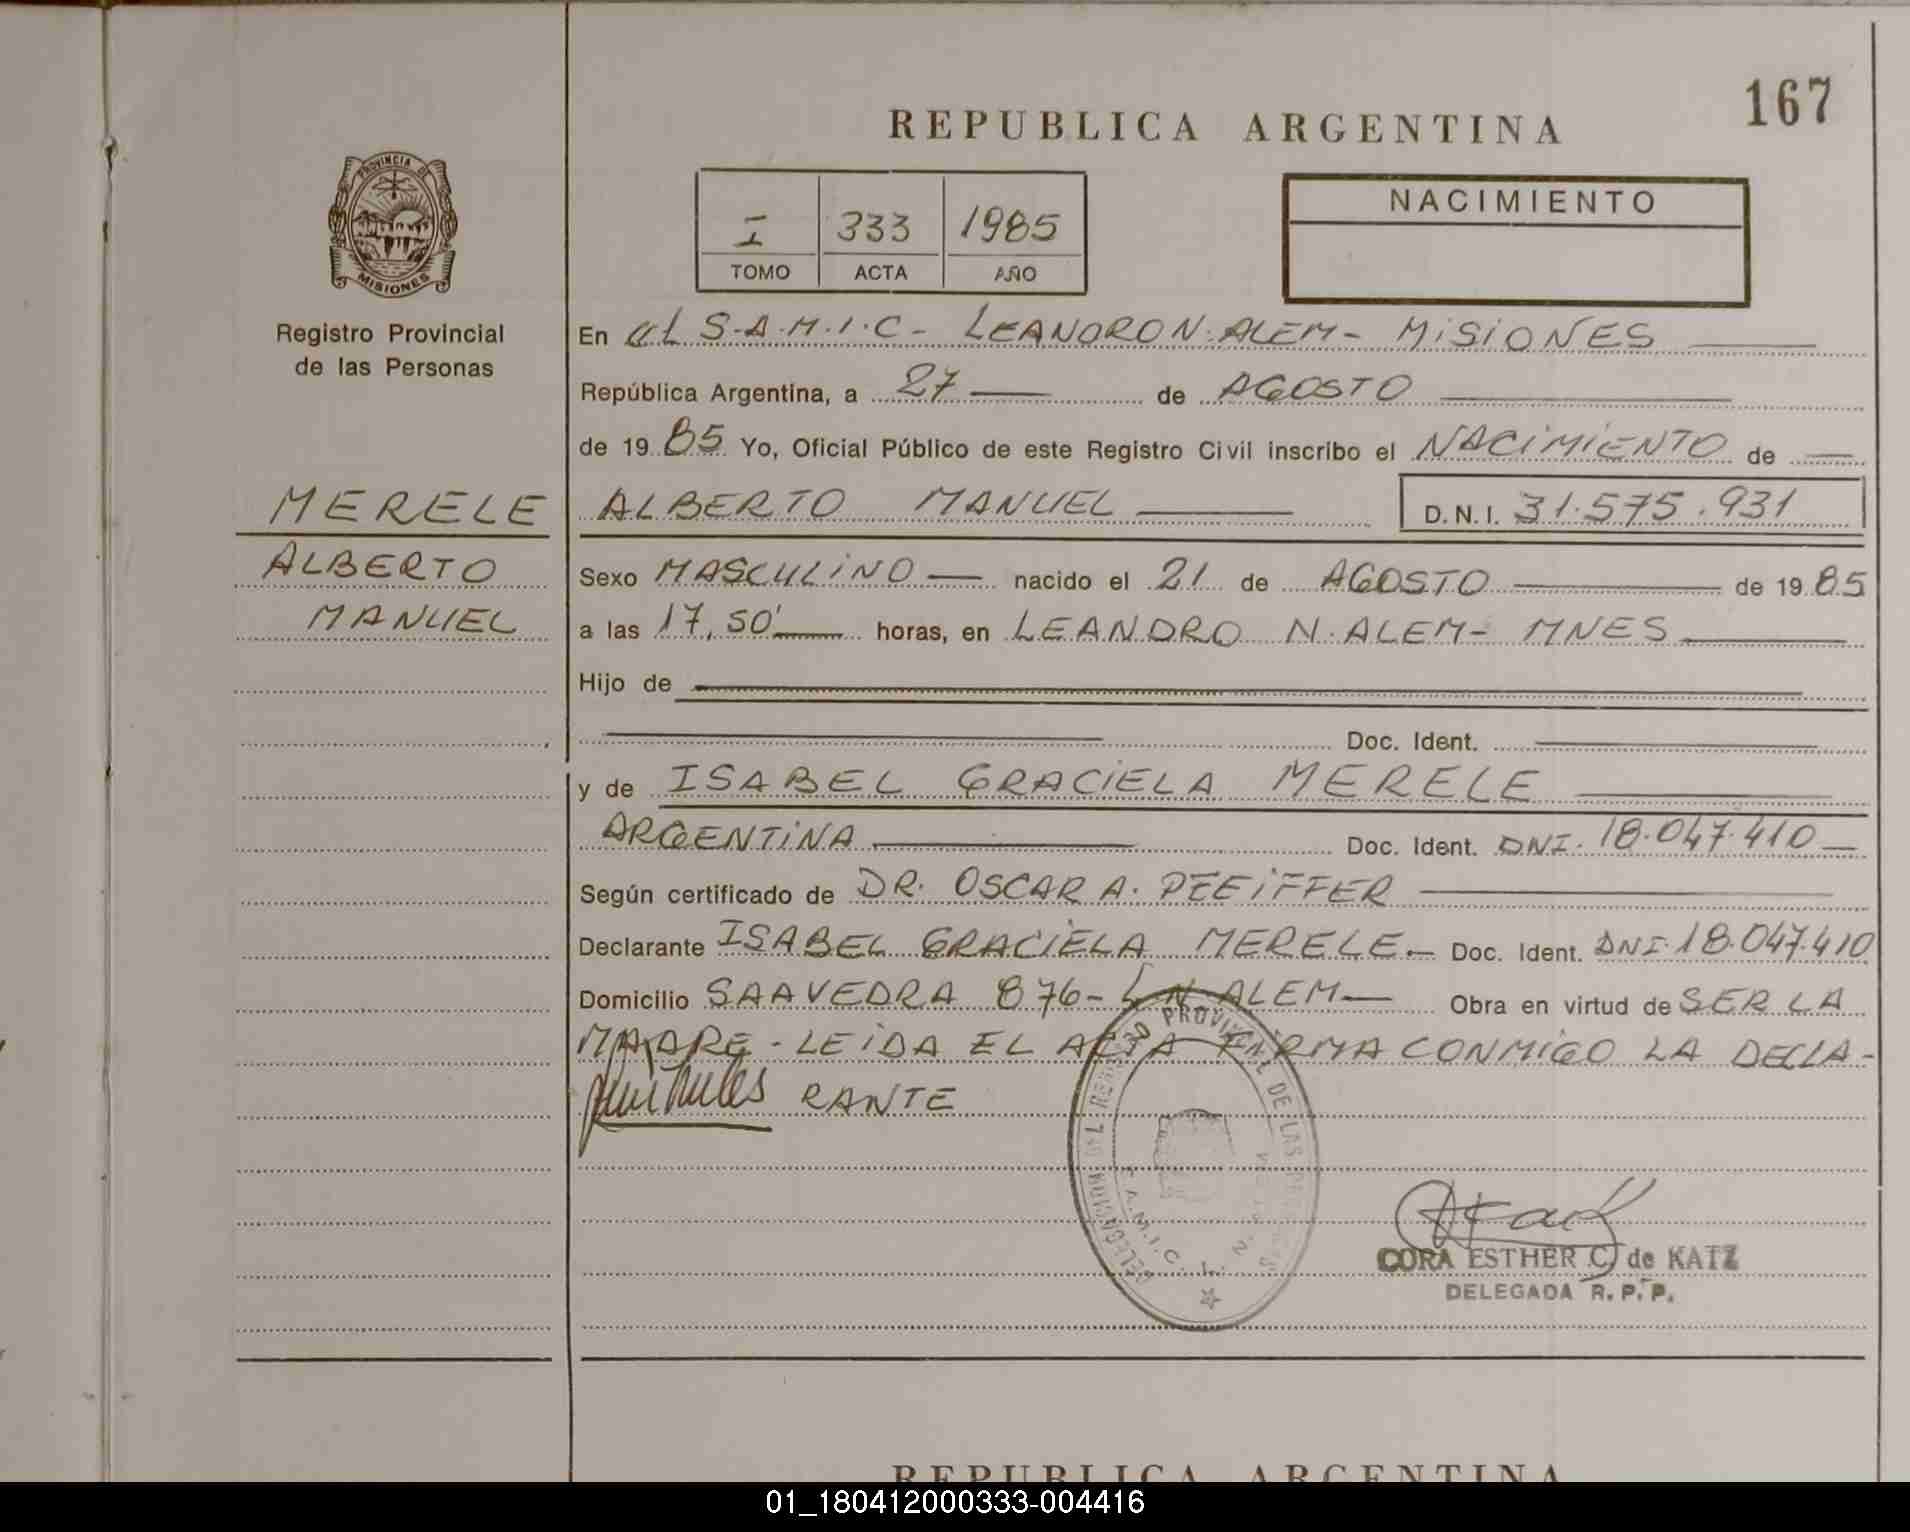 167
REPUBLICA ARGENTINA
PROVINCIA DE
MISIONES
Registro Provincial
de las Personas
I 333 1985
TOMO ACTA AÑO
NACIMIENTO
En el S.A.M.I.C- LEANDRO N. ALEM- MISIONES
República Argentina, a 27 de AGOSTO
de 1985 Yo, Oficial Público de este Registro Civil inscribo el NACIMIENTO de
MERELE
ALBERTO
MANUEL
ALBERTO MANUEL D.N.I. 31.575.931
Sexo MASCULINO nacido el 21 de AGOSTO de 1985
a las 17,50' horas, en LEANDRO N. ALEM- MNES
Hijo de
Doc. Ident.
y de ISABEL GRACIELA MERELE
ARGENTINA Doc. Ident. DNI. 18.047.410
Según certificado de DR. OSCAR A. PFEIFFER
Declarante ISABEL GRACIELA MERELE.- Doc. Ident. DNI. 18.047.410
Domicilio SAAVEDRA 876- L.N. ALEM Obra en virtud de SER LA
MADRE - LEIDA EL ACTA FIRMA CONMIGO LA DECLA-
RANTE
DELEGACION DEL REGISTRO PROVINCIAL DE LAS
S.A.M.I.C. L. N.
CORA ESTHER C. de KATZ
DELEGADA R. P. P.
REPUBLICA ARGENTINA
01_180412000333-004416